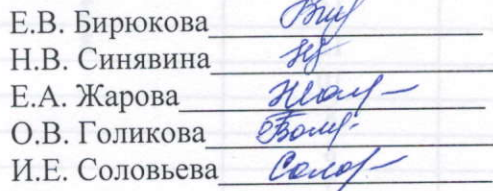 Е.В. Бирюкова
Н.В. Синявина
Е.А. Жарова
О.В. Голикова
И.Е. Соловьева